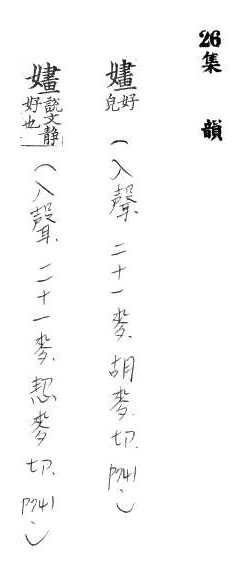 26 集韻
嫿 好皃 (入聲. 二十一麥. 胡麥切. P741.)
嫿 說文靜好也 (入聲. 二十一麥. 㥛麥切. P741.)